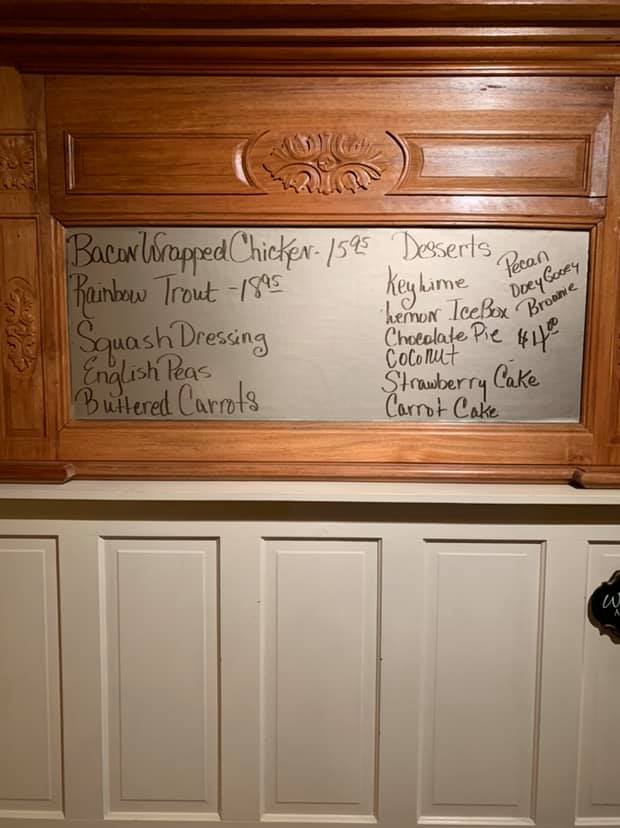 Bacon Wrapped Chicken - 15.95
Rainbow Trout - 18.95
Squash Dressing
English Peas
Buttered Carrots
Desserts
Key Lime
Lemon IceBox
Chocolate Pie
Coconut
Strawberry Cake
Carrot Cake
Pecan
Ooey Gooey
Brownie
$4.00